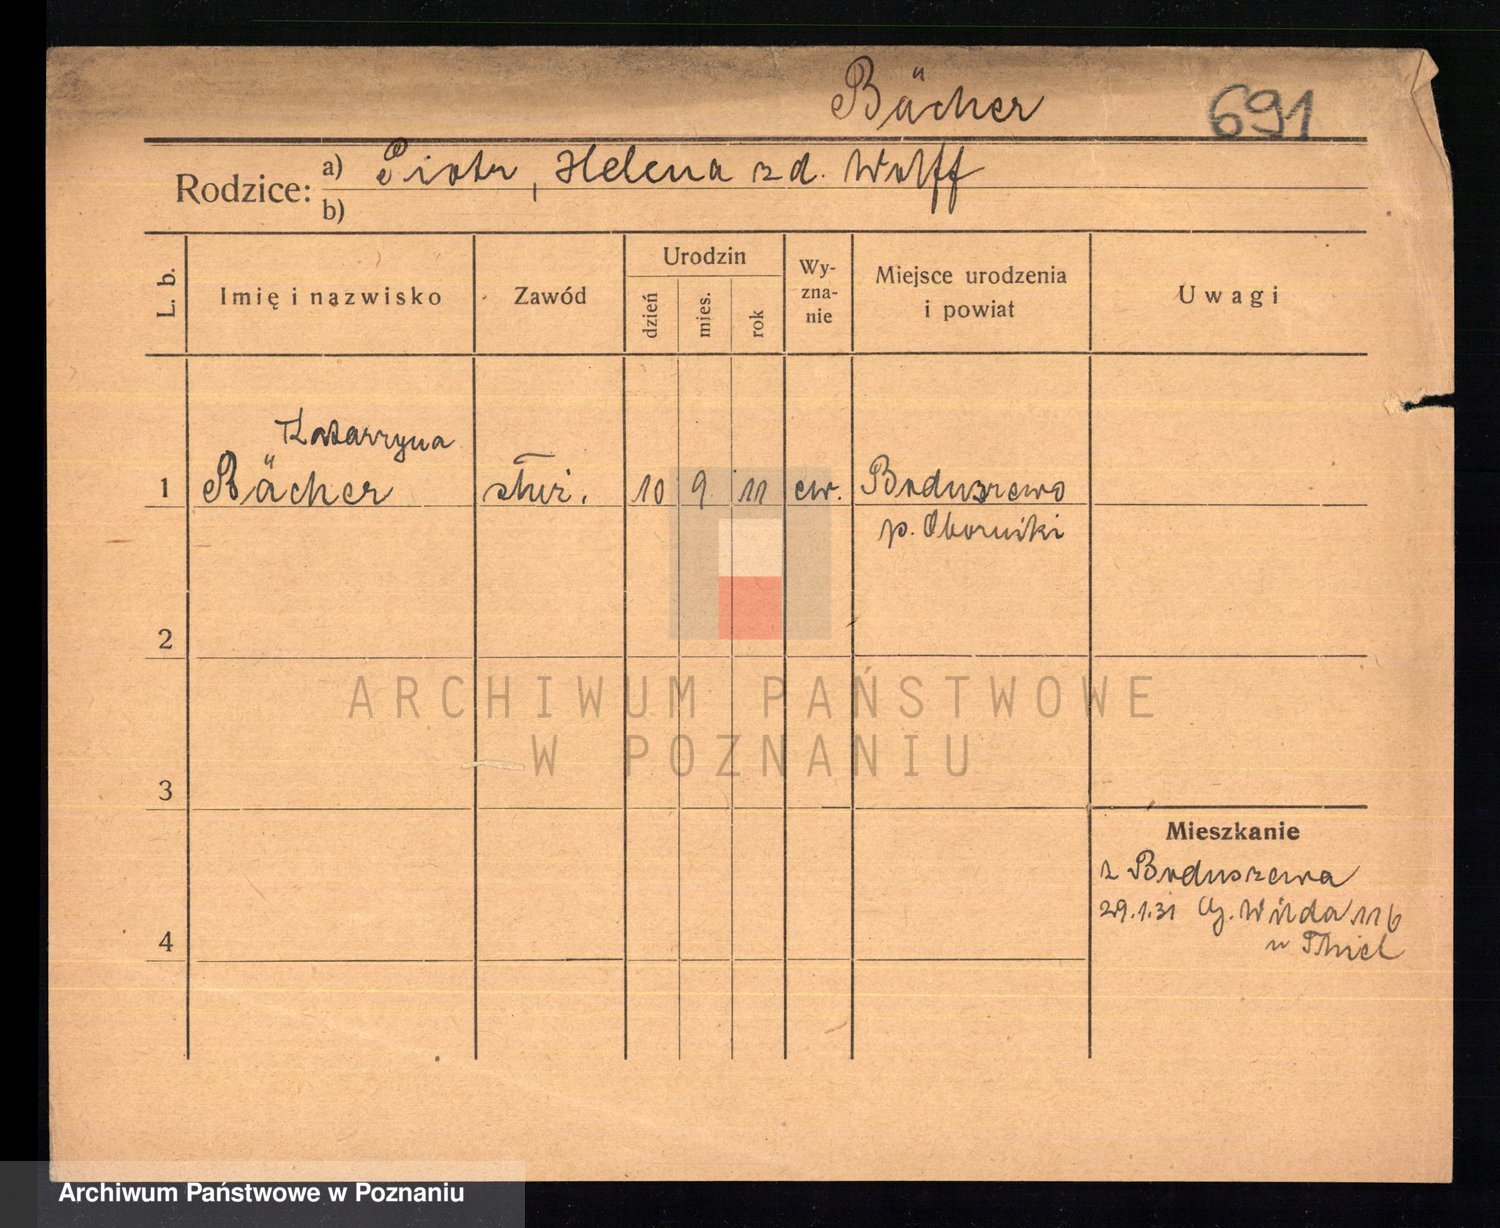 Bächer
691
Rodzice:
a) Piotr, Helena zd. Wolff
b)
L. b.
Imię i nazwisko
Zawód
Urodzin
dzień
mies.
rok
Wy-
zna-
nie
Miejsce urodzenia
i powiat
Uwagi
Katarzyna
1 Bächer służ. 10 9. 11 ew. Boduszewo
p. Oborniki
2
3
Mieszkanie
z Boduszewa
29.1.31 G. Wilda 116
u Thiel
4
ARCHIWUM PAŃSTWOWE
W POZNANIU
Archiwum Państwowe w Poznaniu